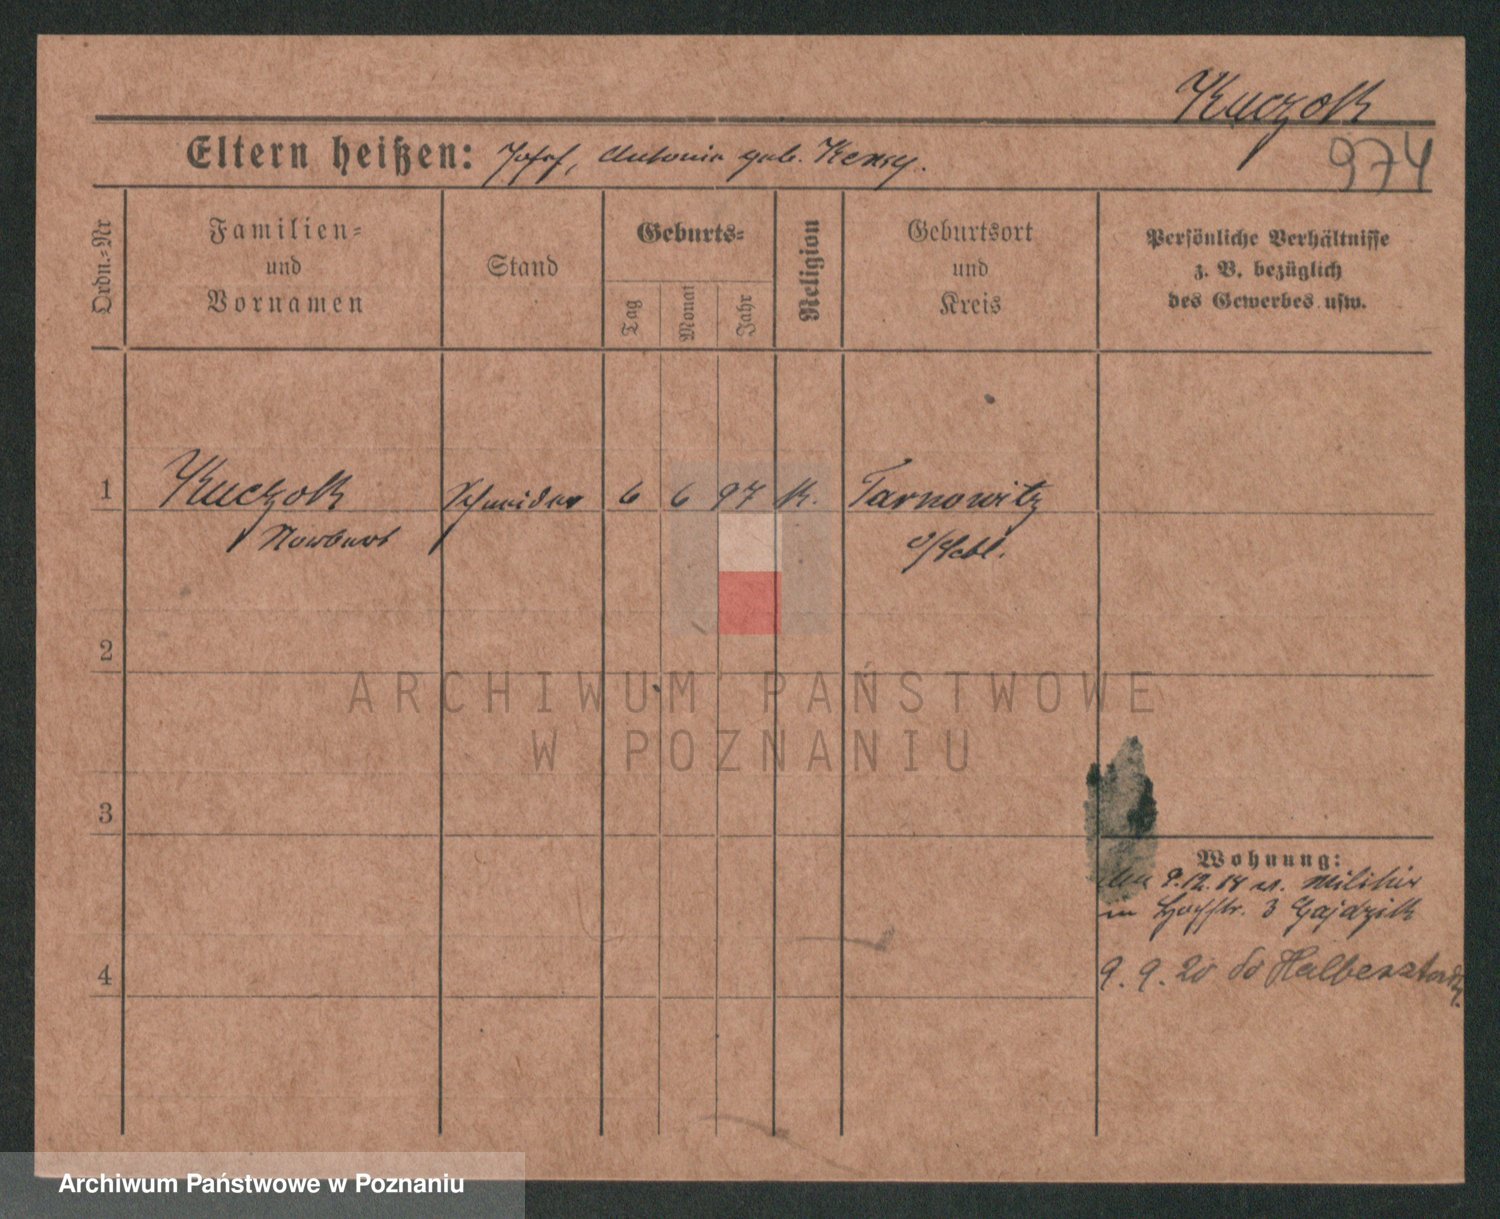 Kuczok
974
Eltern heißen: Josef, Antonie geb.
Ordn.-Nr
Familien-
und
Vornamen
Stand
Geburts-
Tag
Monat
Jahr
Religion
Geburtsort
und
Kreis
Persönliche Verhältnisse
z. B. bezüglich
des Gewerbes usw.
1 Kuczok Schneider 6 6 97 k. Tarnowitz
Norbert O/Schl.
2
ARCHIWUM PAŃSTWOWE
W POZNANIU
3
Wohnung:
9.12.18 v. Militär
in Hochstr. 3 Gajdzik
4
9. 9. 20 do Halbersztadt
Archiwum Państwowe w Poznaniu